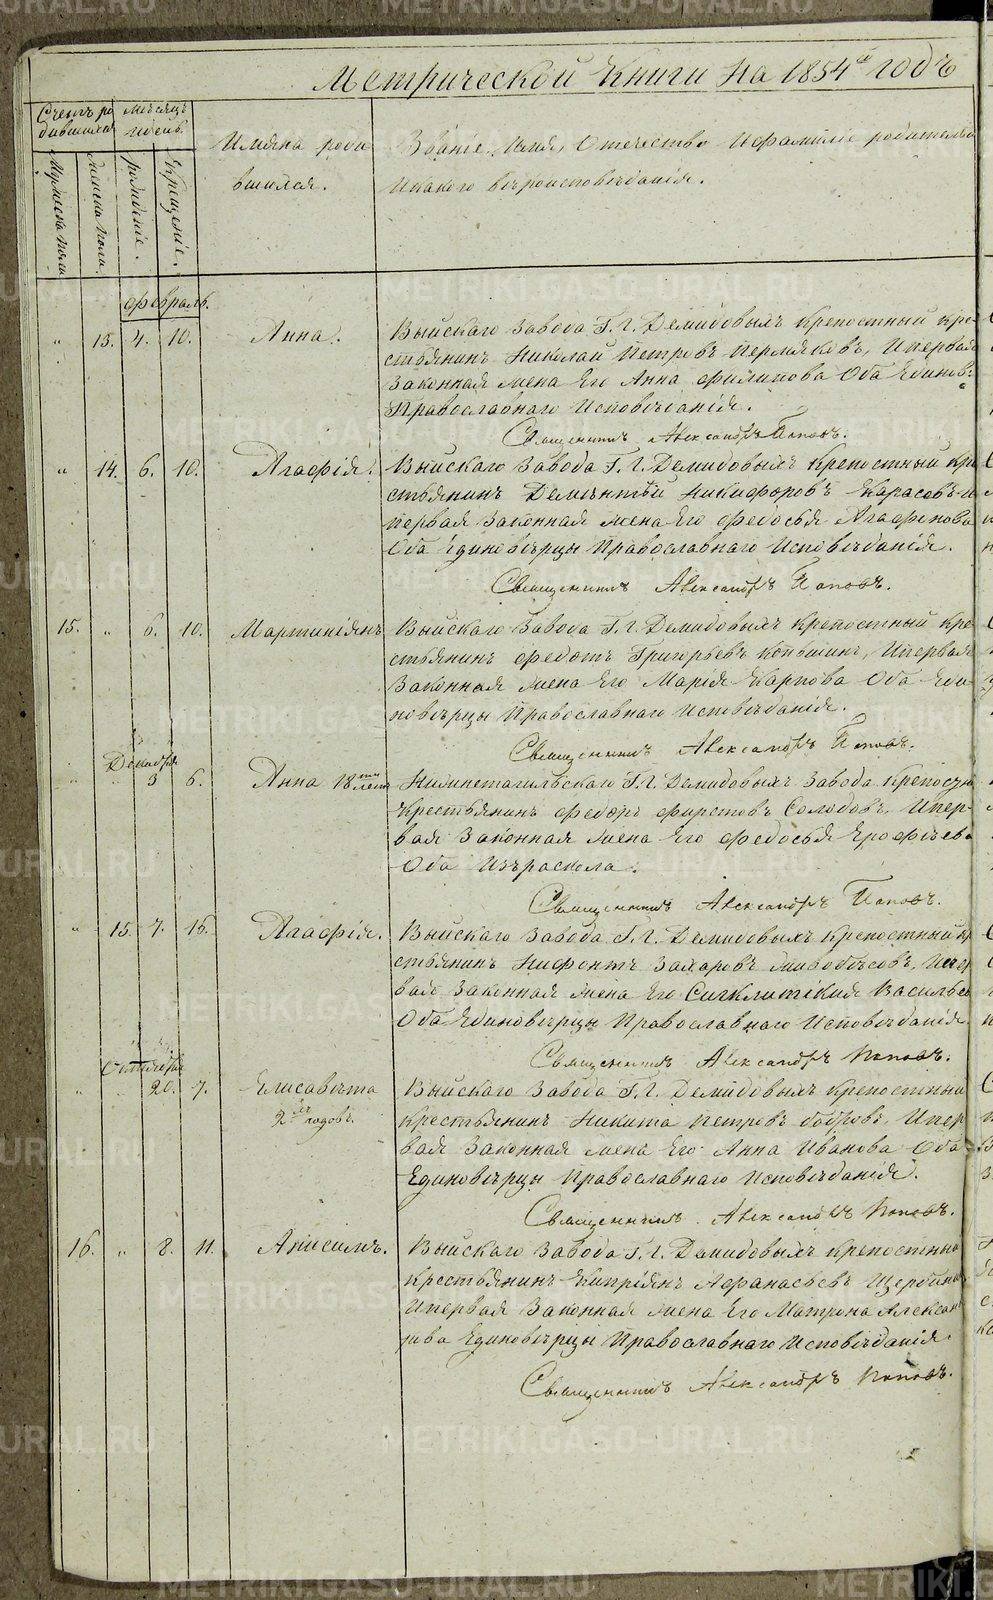 Метрической Книги на 1854й годъ
Счетъ ро
дившихся
Месяцъ
и день.
Мужеска пола
Женска пола
рожденіе.
Крещеніе.
Имяна роди
вшихся.
Званіе, Имя, Отечество И фамиліе родителей
Икакого вѣроисповѣданія.
Февраль.
" 13. 4. 10. Анна.
Выйскаго Завода Г. г. Демидовыхъ крепостный кре
стьянинъ Николай Петровъ Пермяковъ, Ипервая
Законная жена Его Анна филипова Оба Единов:
Православнаго Исповѣданія.
Священникъ Александръ Поповъ.
" 14. 6. 10. Агафія.
Выйскаго Завода Г. г. Демидовыхъ Крепостный кре
стьянинъ Дементій Никифоровъ Карасовъ и
первая Законная жена Его федосья Агафонова
Оба Единовѣрцы Православнаго Исповѣданія.
Священникъ Александръ Поповъ.
15. " 6. 10. Мартиніянъ
Выйскаго Завода Г. г. Демидовыхъ крепостный кре
стьянинъ федотъ Григорьевъ Ипервая
Законная жена Его Марія Карпова Оба Еди
новѣрцы Православнаго Исповѣданія.
Священникъ Александръ Поповъ.
Декабря
3 6. Анна 18ти лет
Нижнетагильскаго Г. г. Демидовыхъ Завода Крепосны
Крестьянинъ федоръ фирстовъ Солодовъ, Ипер
вая Законная жена Его федосья Ерофѣева
Оба Изъраскола.
Священникъ Александръ Поповъ.
" 15. 7. 16. Агафія.
Выйскаго Завода Г. г. Демидовыхъ Крепостный кр
стьянинъ Нифонтъ Захаровъ Ипер
вая Законная жена Его Сигклитікия Васильев
Оба Единовѣрцы Православнаго Исповѣданія
Священникъ Александръ Поповъ.
Октября
" 20. 7. Елисавѣта
2хъ годовъ.
Выйскаго Завода Г. г. Демидовыхъ Крепостный
крестьянинъ Никита Петровъ бобровъ, Ипер
вая Законная жена Его Анна Иванова Оба
Единовѣрцы Православнаго Исповѣданія.
Священникъ Александръ Поповъ.
16. " 8. 11. Анисимъ.
Выйскаго Завода Г. г. Демидовыхъ Крепостный
крестьянинъ Кипріянъ Афанасьевъ Щербина
Ипервая Законная жена Его Матрона Алексан
рова Единовѣрцы Православнаго Исповѣданія.
Священникъ Александръ Поповъ.
METRIKI.GASO-URAL.RU